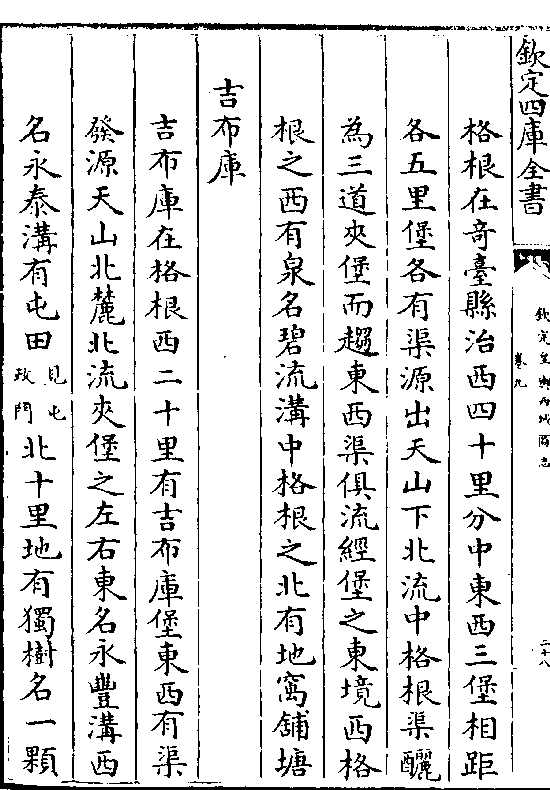 欽定四庫全書
欽定皇輿西域圖志
卷九
二十八
格根在奇臺縣治西四十里分中東西三堡相距
各五里堡各有渠源出天山下北流中格根渠釃
為三道夾堡而趨東西渠俱流經堡之東境西格
根之西有泉名碧流溝中格根之北有地窩舖塘
吉布庫
吉布庫在格根西二十里有吉布庫堡東西有渠
發源天山北麓北流夾堡之左右東名永豐溝西
名永泰溝有屯田見屯政門北十里地有獨樹名一顆